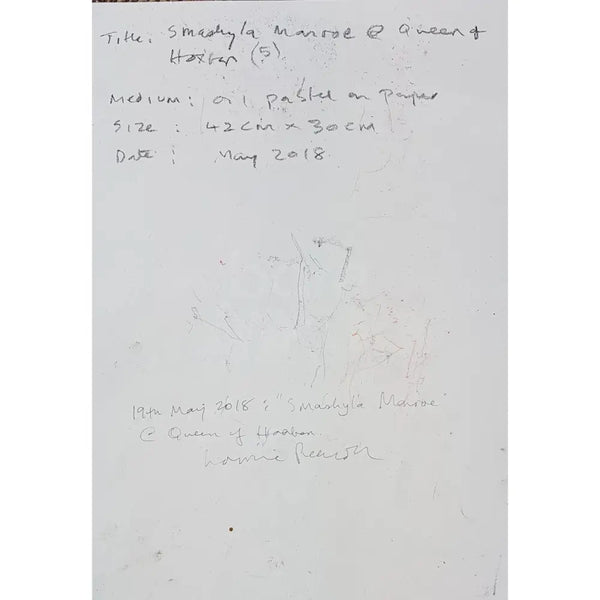 Title: Smashyla Monroe @ Queen of
Hoxton (5)
Medium: oil pastel on paper
Size : 42cm x 30cm
Date : May 2018
19th May 2018: "Smashyla Monroe"
@ Queen of Hoxton.